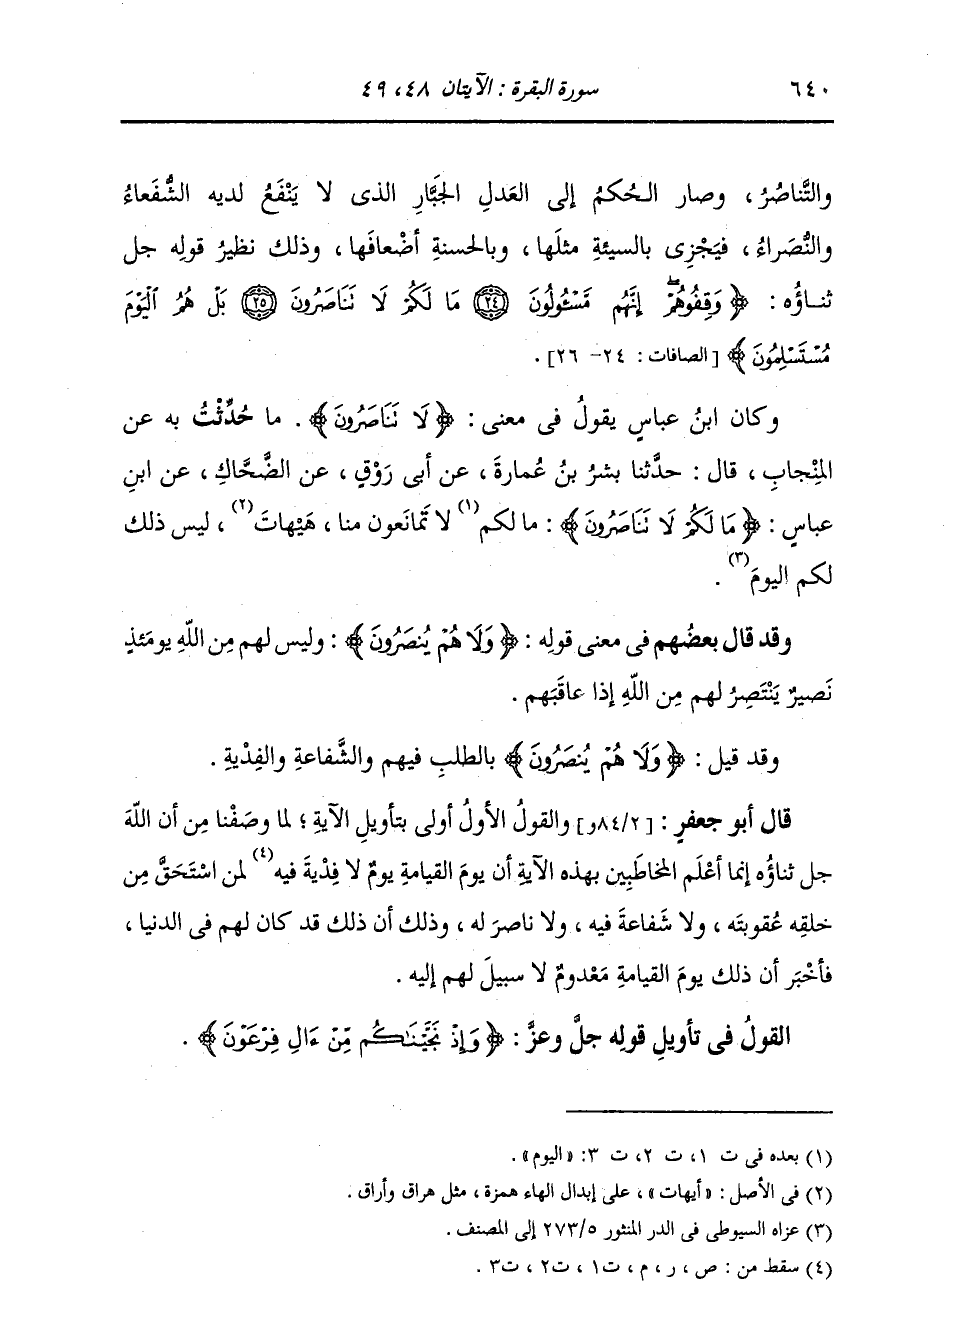 ٦٤٠ سورة البقرة : الآيتان ٤٨، ٤٩
والتَّناصُرُ، وصار الحُكمُ إلى العَدلِ الجبَّارِ الذى لا يَنْفَعُ لديه الشُّفَعاءُ
والنُّصَراءُ، فيَجْزِى بالسيئةِ مثلَها، وبالحسنةِ أضْعافَها، وذلك نظيرُ قولِه جل
ثناؤُه : ﴿ وَقِفُوهُمْۖ إِنَّهُم مَّسْـُٔولُونَ ﴿٢٤﴾ مَا لَكُمْ لَا تَنَاصَرُونَ ﴿٢٥﴾ بَلْ هُمُ ٱلْيَوْمَ
مُسْتَسْلِمُونَ ﴾ [الصافات : ٢٤- ٢٦] .
وكان ابنُ عباسٍ يقولُ فى معنى : ﴿ لَا تَنَاصَرُونَ ﴾ . ما حُدِّثْتُ به عن
المِنْجابِ، قال : حدَّثنا بشرُ بنُ عُمارةَ، عن أبى رَوْقٍ، عن الضَّحَّاكِ، عن ابنِ
عباسٍ : ﴿ مَا لَكُمْ لَا تَنَاصَرُونَ ﴾ : ما لكم(١) لا تَمانَعون منا، هَيْهاتَ(٢)، ليس ذلك
لكم اليومَ(٣) .
وقد قال بعضُهم فى معنى قولِه : ﴿ وَلَا هُمْ يُنصَرُونَ ﴾ : وليس لهم مِن اللَّهِ يومَئذٍ
نَصيرٌ يَنْتَصِرُ لهم مِن اللَّهِ إذا عاقَبَهم .
وقد قيل : ﴿ وَلَا هُمْ يُنصَرُونَ ﴾ بالطلبِ فيهم والشَّفاعةِ والفِدْيةِ .
قال أبو جعفرٍ : [٨٤/٢و] والقولُ الأولُ أولى بتأويلِ الآيةِ؛ لما وصَفْنا مِن أن اللَّهَ
جل ثناؤُه إنما أعْلَم المخاطَبِين بهذه الآيةِ أن يومَ القيامةِ يومٌ لا فِدْيةَ فيه(٤) لمن اسْتَحَقَّ مِن
خلقِه عُقوبتَه، ولا شَفاعةَ فيه، ولا ناصرَ له، وذلك أن ذلك قد كان لهم فى الدنيا،
فأخْبَر أن ذلك يومَ القيامةِ مَعْدومٌ لا سبيلَ لهم إليه .
القولُ فى تأويلِ قولِه جلَّ وعزَّ : ﴿ وَإِذْ نَجَّيْنَـٰكُم مِّنْ ءَالِ فِرْعَوْنَ ﴾ .
(١) بعده فى ت ١، ت ٢، ت ٣: «اليوم» .
(٢) فى الأصل : «أيهات»، على إبدال الهاء همزة، مثل هراق وأراق .
(٣) عزاه السيوطى فى الدر المنثور ٢٧٣/٥ إلى المصنف .
(٤) سقط من : ص، ر، م، ت١، ت٢، ت٣ .